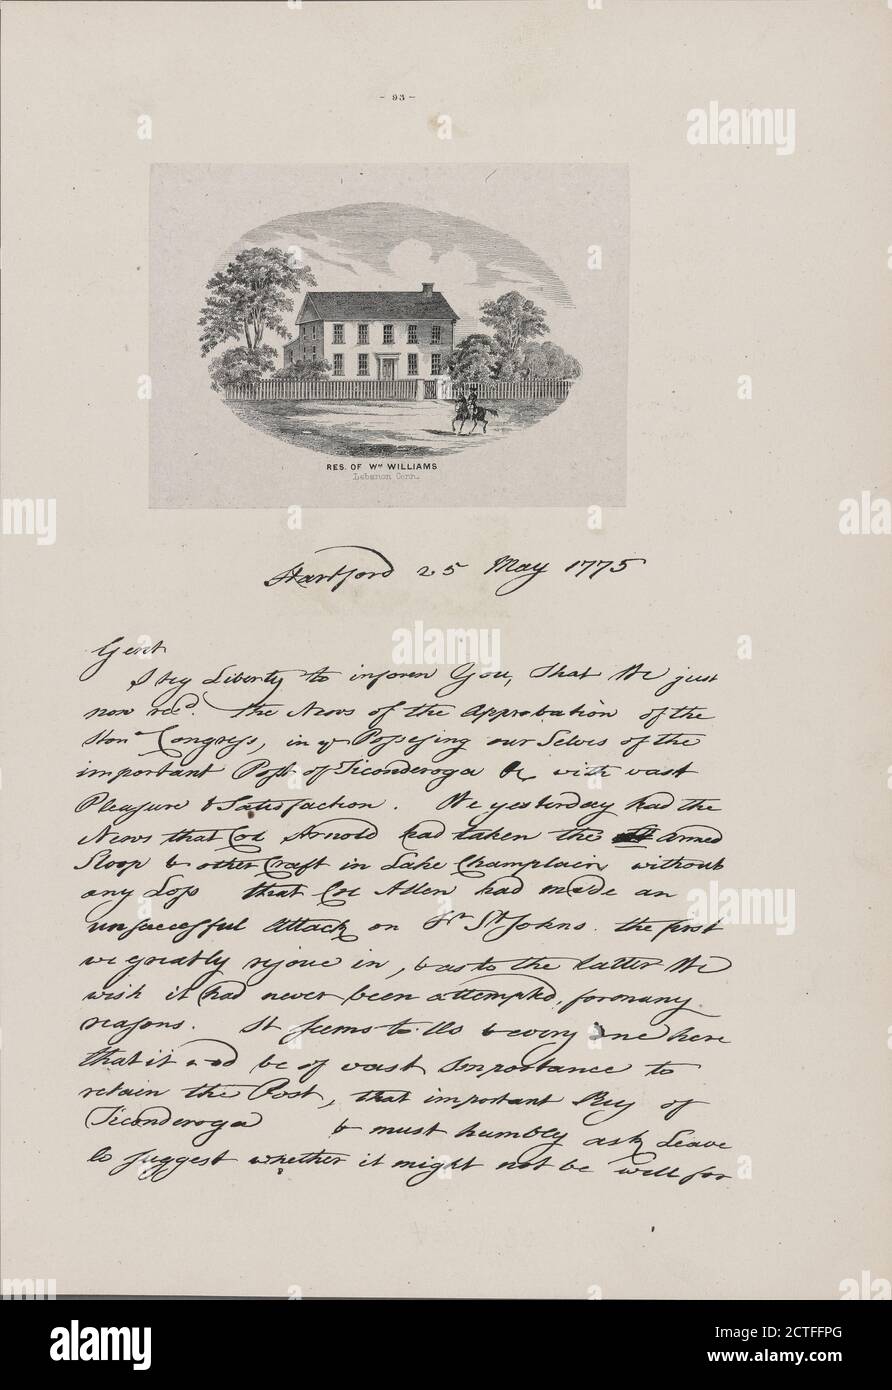 - 93 -
RES. OF Wm WILLIAMS
Lebanon Conn.
Hartford 25 May 1775
Gent
I beg Liberty to inform You, that We just
now recd. the News of the Approbation of the
Honl Congress, in ye Possessing our Selves of the
important Post of Ticonderoga &c with vast
Pleasure & Satisfaction. We yesterday had the
News that Col Arnold had taken the armed
Sloop & other Craft in Lake Champlain without
any Loss that Col Allen had made an
unsuccessful Attack on St Johns. the first
we greatly rejoice in, & as to the latter We
wish it had never been attempted, for many
reasons. It seems to Us & every one here
that it wod be of vast Importance to
retain the Post, that important Key of
Ticonderoga & must humbly ask Leave
to suggest whether it might not be well for
alamy
alamy
Image ID: 2CTFFPG
www.alamy.com